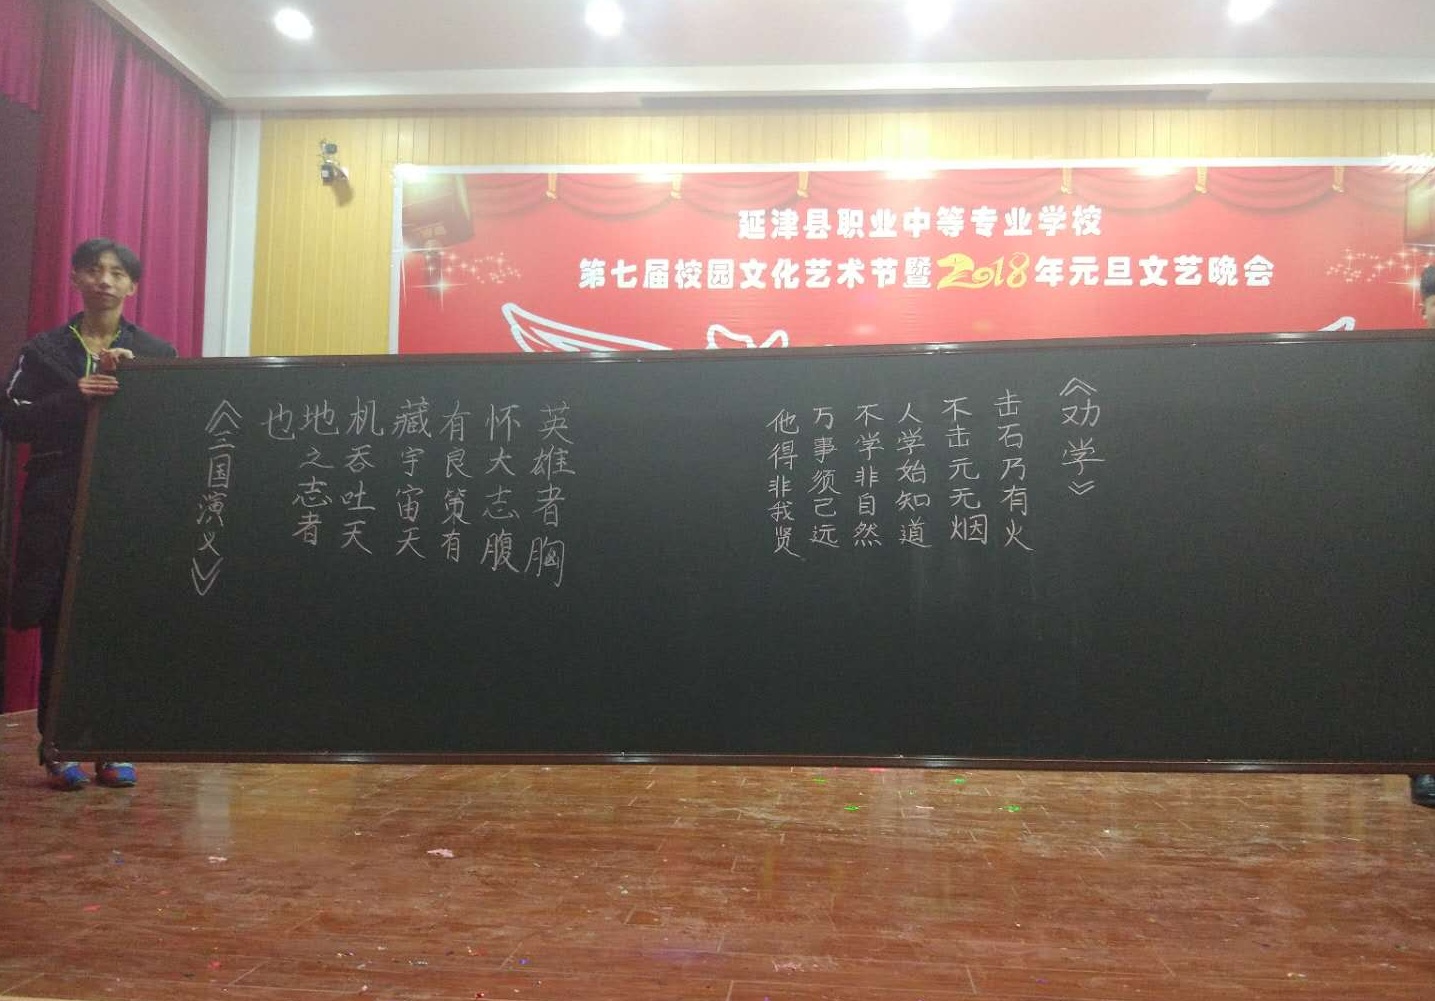 延津县职业中等专业学校
第七届校园文化艺术节暨2018年元旦文艺晚会
《劝学》
击石乃有火
不击元无烟
人学始知道
不学非自然
万事须己远
他得非我贤
英雄者胸
怀大志腹
有良策有
藏宇宙天
机吞吐天
地之志者
也
《三国演义》